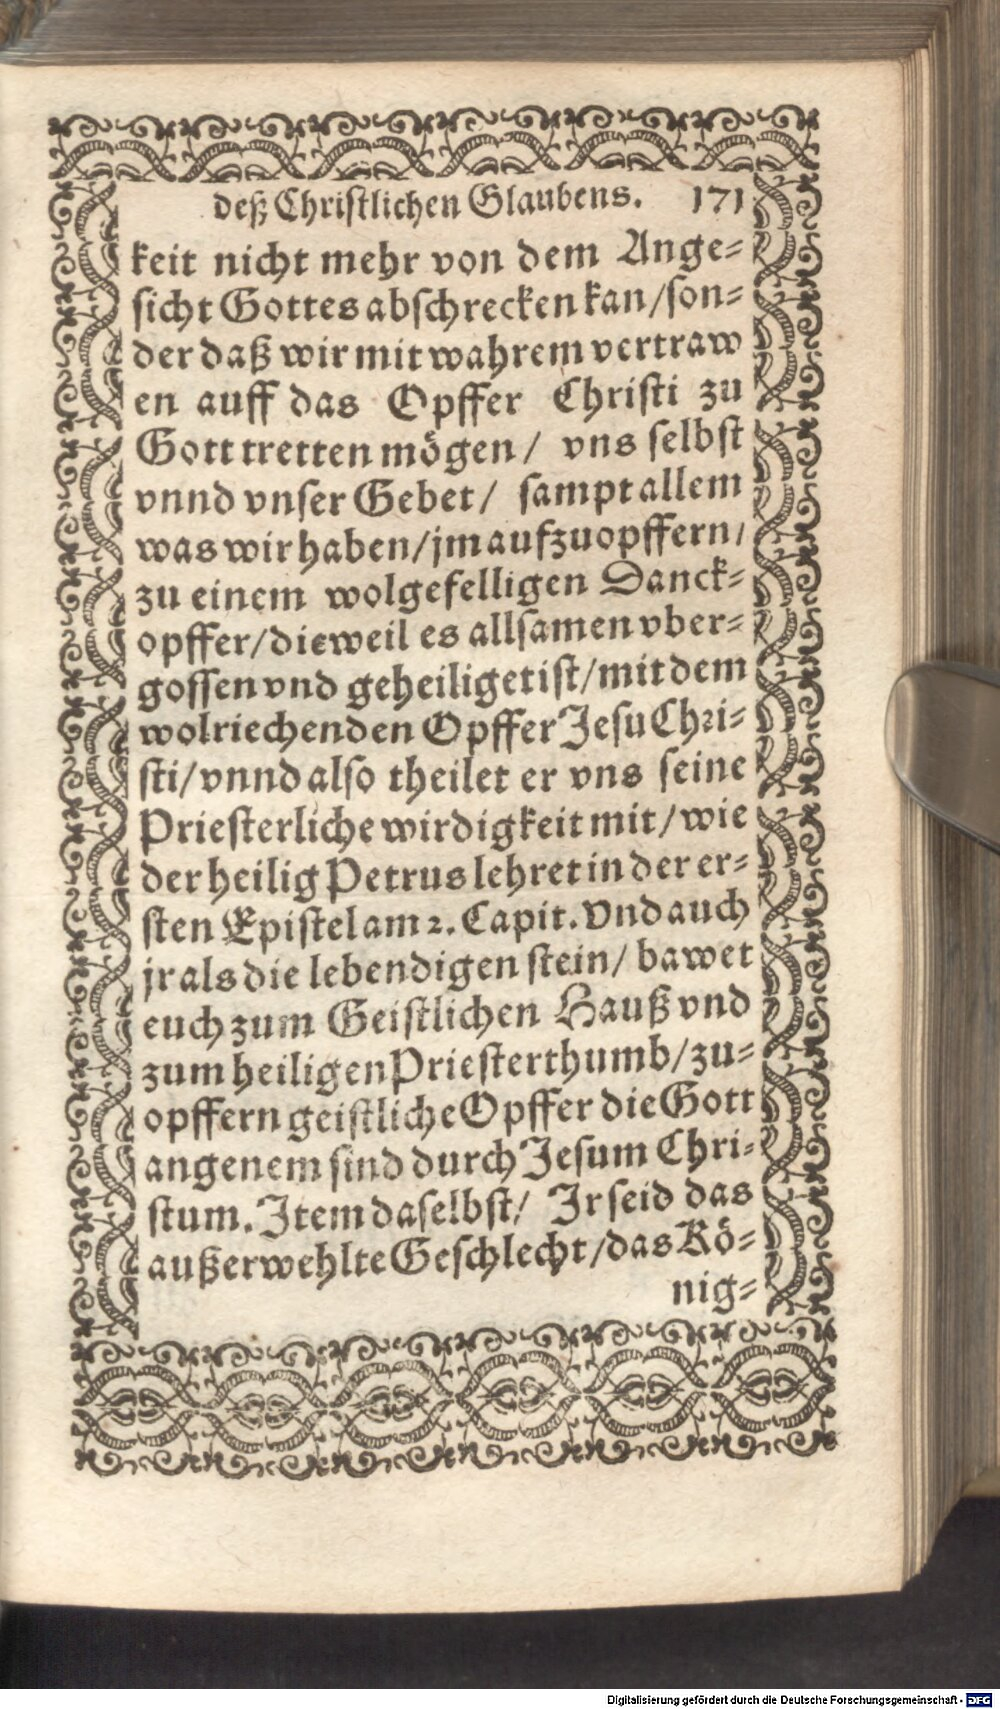 deß Christlichen Glaubens. 171
keit nicht mehr von dem Ange-
sicht Gottes abschrecken kan/son-
der daß wir mit wahrem vertraw
en auff das Opffer Christi zu
Gott tretten mögen/ vns selbst
vnnd vnser Gebet/ sampt allem
was wir haben/jm aufzuopffern/
zu einem wolgefelligen Danck-
opffer/dieweil es allsamen vber-
gossen vnd geheiliget ist/mit dem
wolriechenden Opffer Jesu Chri-
sti/vnnd also theilet er vns seine
Priesterliche wirdigkeit mit/wie
der heilig Petrus lehret in der er-
sten Epistel am 2. Capit. Vnd auch
jr als die lebendigen stein/ bawet
euch zum Geistlichen Hauß vnd
zum heiligen Priesterthumb/zu-
opffern geistliche Opffer die Gott
angenem sind durch Jesum Chri-
stum. Item daselbst/ Ir seid das
außerwehlte Geschlecht/das Kö-
nig-
Digitalisierung gefördert durch die Deutsche Forschungsgemeinschaft - DFG